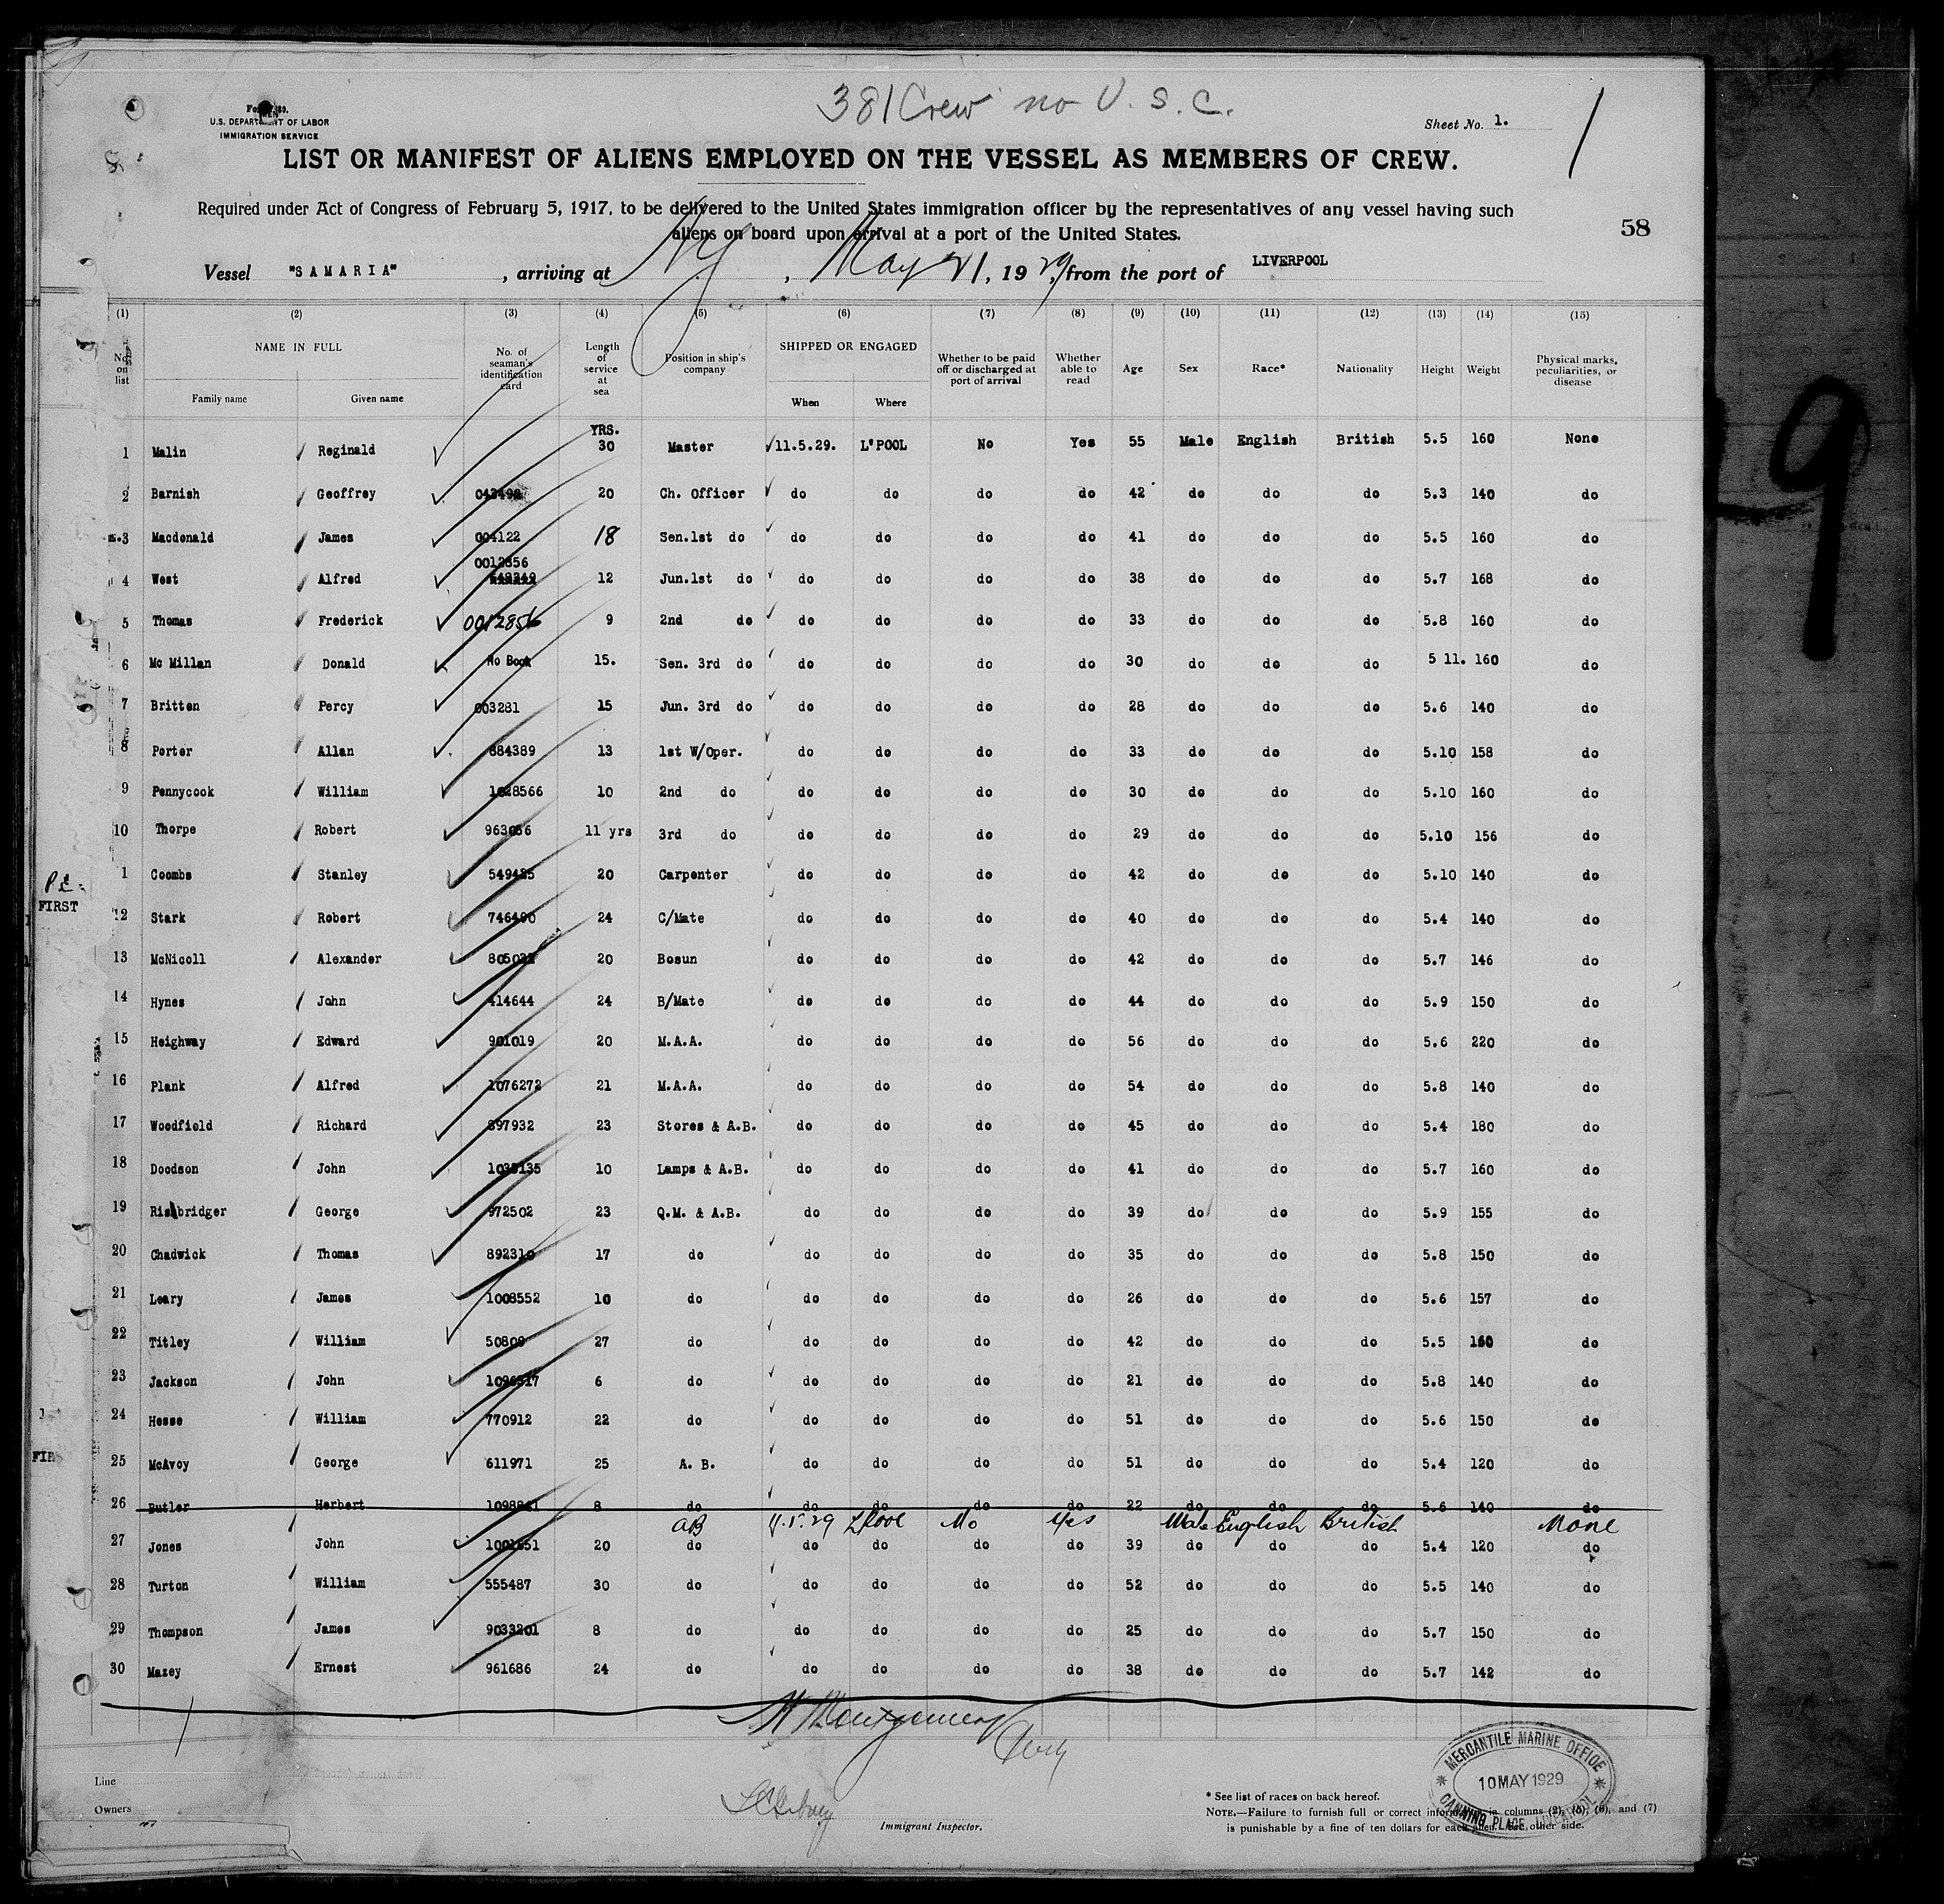 381 Crew no U. S. C.
U.S. DEPARTMENT OF LABOR
IMMIGRATION SERVICE
Sheet No. 1.
1
LIST OR MANIFEST OF ALIENS EMPLOYED ON THE VESSEL AS MEMBERS OF CREW.
Required under Act of Congress of February 5, 1917, to be delivered to the United States immigration officer by the representatives of any vessel having such
aliens on board upon arrival at a port of the United States.
58
Vessel "SAMARIA", arriving at Ny, May 21, 1929, from the port of LIVERPOOL
(1) (2) (3) (4) (5) (6) (7) (8) (9) (10) (11) (12) (13) (14) (15)
No. on list NAME IN FULL Family name Given name No. of seaman's identification card Length of service at sea Position in ship's company SHIPPED OR ENGAGED When Where Whether to be paid off or discharged at port of arrival Whether able to read Age Sex Race* Nationality Height Weight Physical marks, peculiarities, or disease
YRS.
1 Malin Reginald 30 Master 11.5.29. L'POOL No Yes 55 Male English British 5.5 160 None
2 Barnish Geoffrey 20 Ch. Officer do do do do 42 do do do 5.3 140 do
3 Macdonald James 004122 18 Sen.1st do do do do do 41 do do do 5.5 160 do
0012856
4 West Alfred 12 Jun.1st do do do do do 38 do do do 5.7 168 do
5 Thomas Frederick 0012856 9 2nd do do do do do 33 do do do 5.8 160 do
6 Mc Millan Donald No Book 15. Sen. 3rd do do do do do 30 do do do 5 11. 160 do
7 Britten Percy 003281 15 Jun. 3rd do do do do do 28 do do do 5.6 140 do
8 Porter Allan 884389 13 1st W/Oper. do do do do 33 do do do 5.10 158 do
9 Pennycook William 1028566 10 2nd do do do do do 30 do do do 5.10 160 do
10 Thorpe Robert 963056 11 yrs 3rd do do do do do 29 do do do 5.10 156 do
1 Coombs Stanley 549425 20 Carpenter do do do do 42 do do do 5.10 140 do
P.E.
FIRST
12 Stark Robert 746490 24 C/Mate do do do do 40 do do do 5.4 140 do
13 McNicoll Alexander 20 Bosun do do do do 42 do do do 5.7 146 do
14 Hynes John 414644 24 B/Mate do do do do 44 do do do 5.9 150 do
15 Heighway Edward 901019 20 M.A.A. do do do do 56 do do do 5.6 220 do
16 Plank Alfred 1076272 21 M.A.A. do do do do 54 do do do 5.8 140 do
17 Woodfield Richard 897932 23 Stores & A.B. do do do do 45 do do do 5.4 180 do
18 Doodson John 10 Lamps & A.B. do do do do 41 do do do 5.7 160 do
19 Rishbridger George 972502 23 Q.M. & A.B. do do do do 39 do do do 5.9 155 do
20 Chadwick Thomas 892310 17 do do do do do 35 do do do 5.8 150 do
21 Leary James 1008552 10 do do do do do 26 do do do 5.6 157 do
22 Titley William 50809 27 do do do do do 42 do do do 5.5 160 do
23 Jackson John 6 do do do do do 21 do do do 5.8 140 do
24 Hesse William 770912 22 do do do do do 51 do do do 5.6 150 do
25 McAvoy George 611971 25 A. B. do do do do 51 do do do 5.4 120 do
26 Butler Herbert 8 do do do do do 22 do do do 5.6 140 do
AB 11.5.29 L'Pool No Yes Male English British None
27 Jones John 20 do do do do do 39 do do do 5.4 120 do
28 Turton William 555487 30 do do do do do 52 do do do 5.5 140 do
29 Thompson James 9033201 8 do do do do do 25 do do do 5.7 150 do
30 Mazey Ernest 961686 24 do do do do do 38 do do do 5.7 142 do
Montgomery
Line
Owners
Immigrant Inspector.
* See list of races on back hereof.
NOTE.—Failure to furnish full or correct information in columns (2), (5), (6), and (7)
is punishable by a fine of ten dollars for each alien. See other side.
MERCANTILE MARINE OFFICE
10 MAY 1929
CANNING PLACE, LIVERPOOL